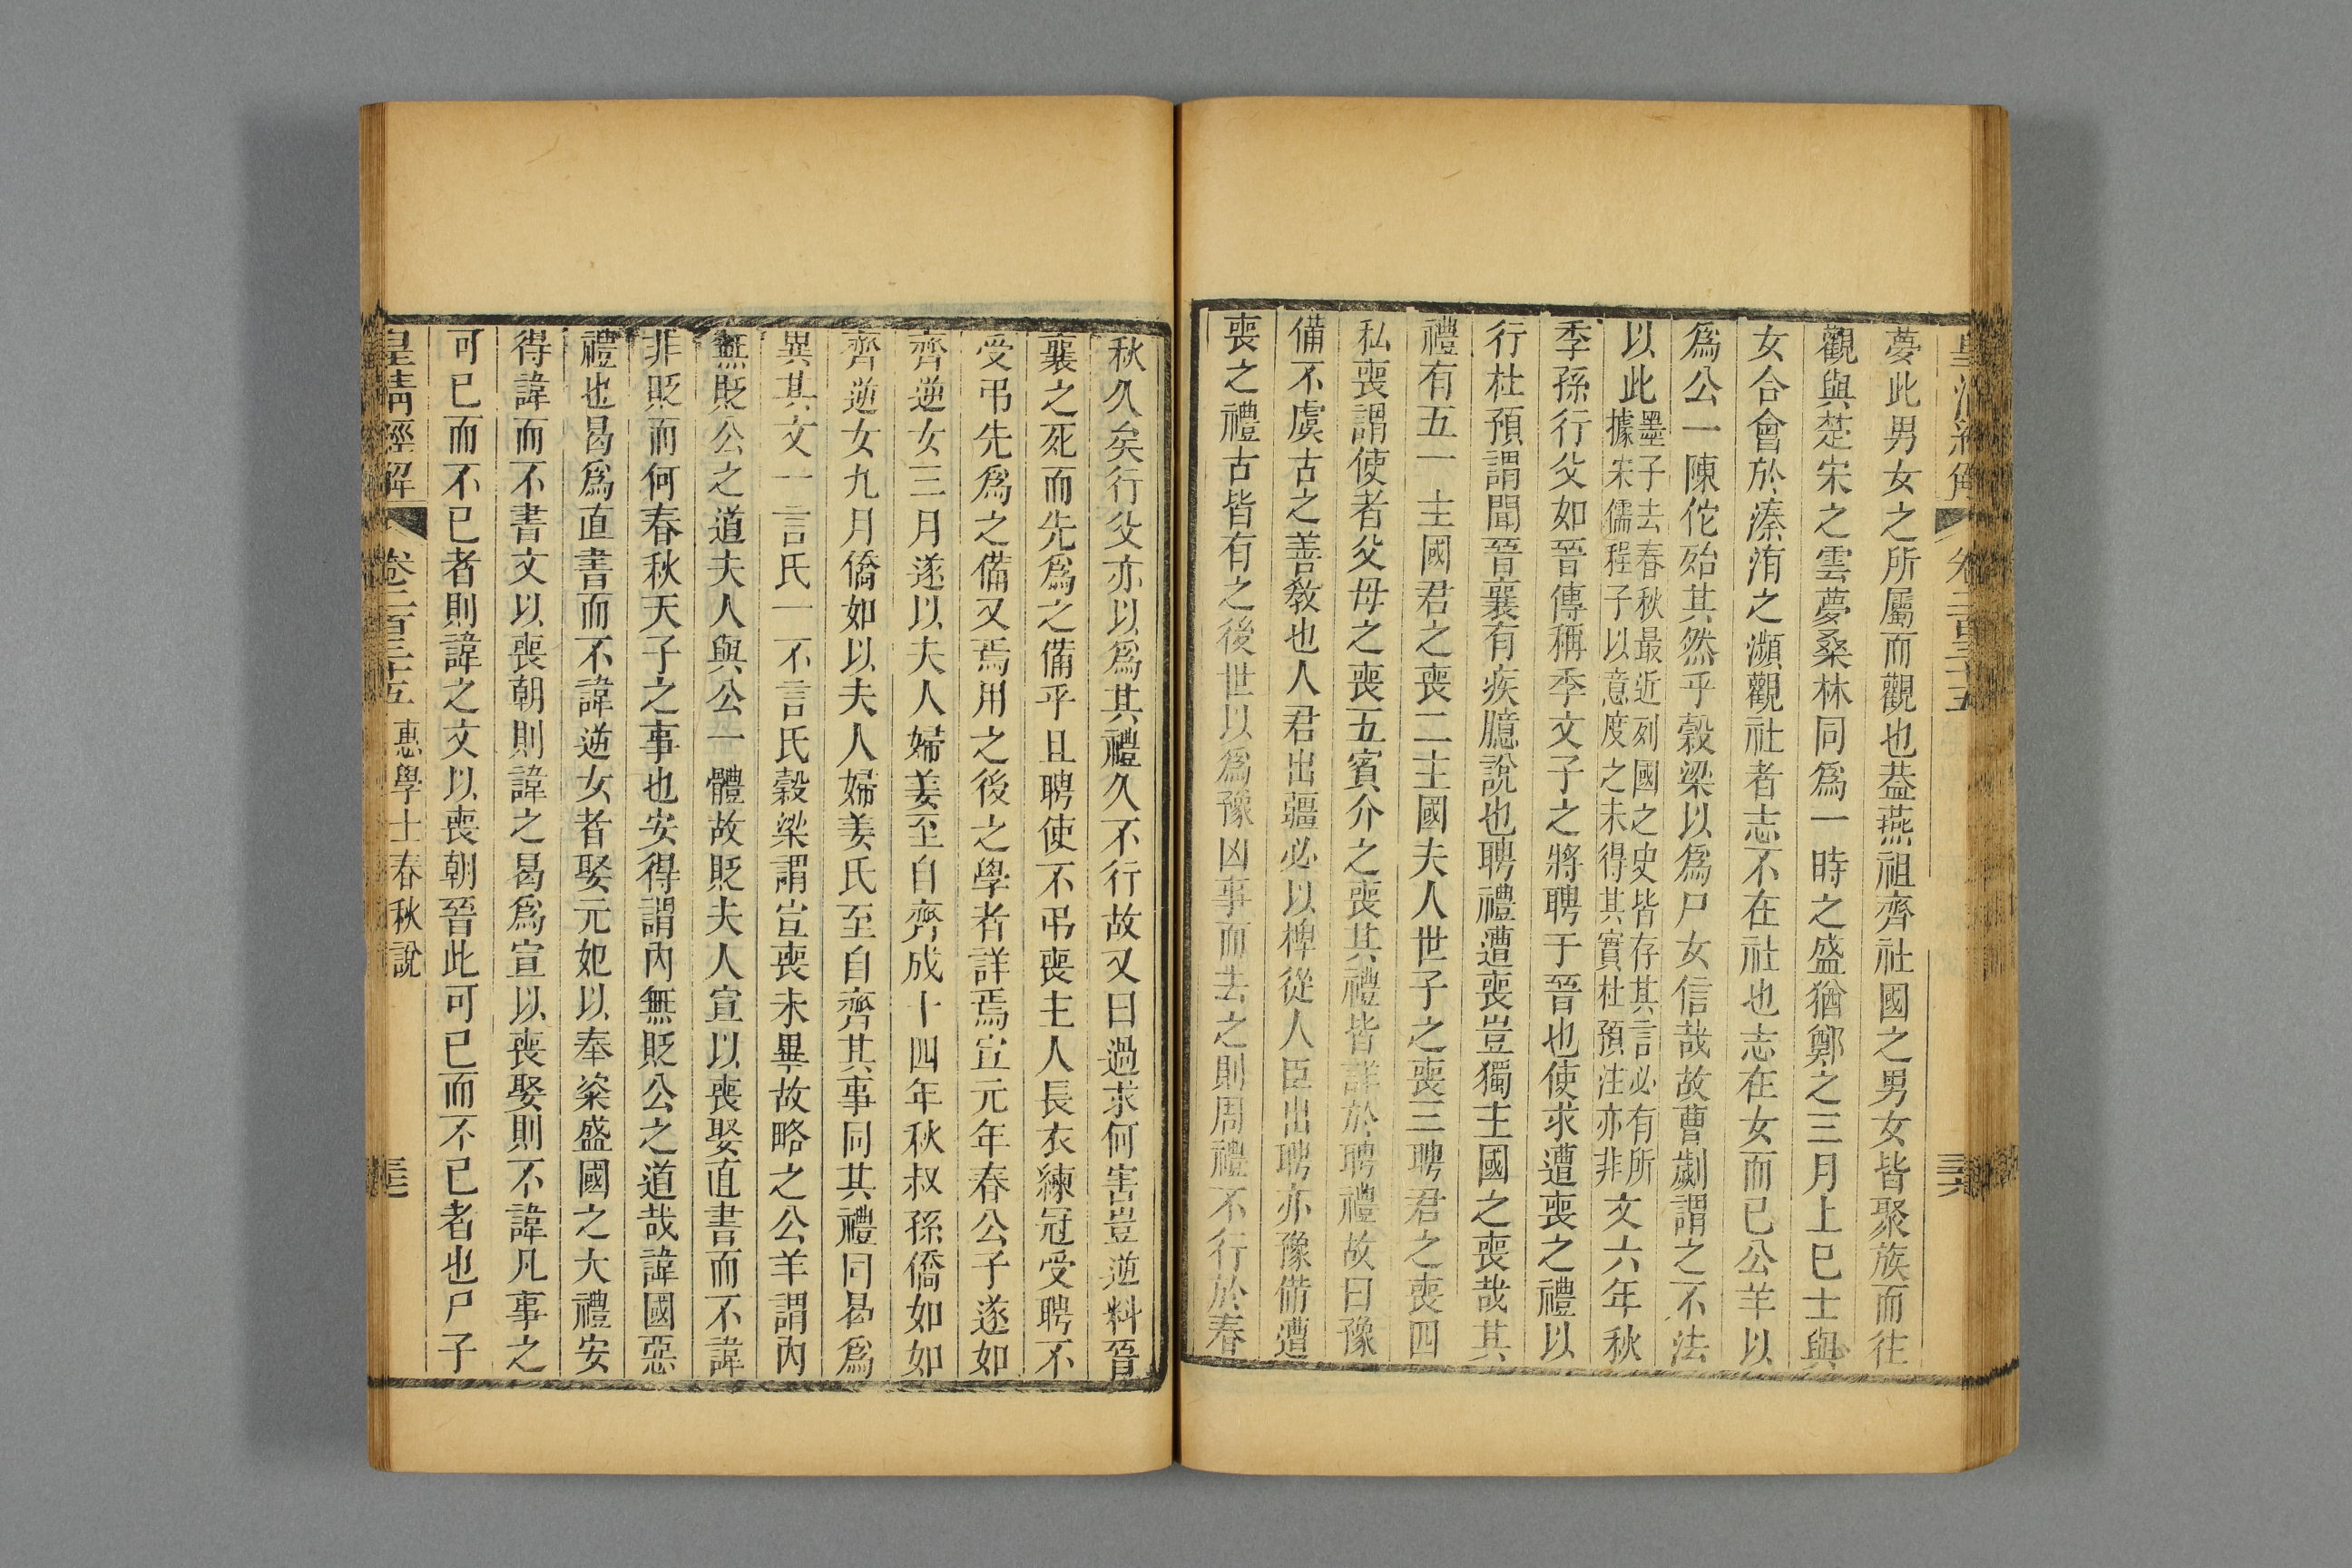 夢此男女之所屬而觀也葢燕祖齊社國之男女皆聚族而往
觀與楚宋之雲夢桑林同爲一時之盛猶鄭之三月上巳士與
女合會於溱洧之瀕觀社者志不在社也志在女而已公羊以
爲公一陳佗殆其然乎穀梁以爲尸女信哉故曹劌謂之不法
以此墨子去春秋最近列國之史皆存其言必有所
據宋儒程子以意度之未得其實杜預注亦非文六年秋
季孫行父如晉傳稱季文子之將聘于晉也使求遭喪之禮以
行杜預謂聞晉襄有疾臆說也聘禮遭喪豈獨主國之喪哉其
禮有五一主國君之喪二主國夫人世子之喪三聘君之喪四
私喪謂使者父母之喪五賓介之喪其禮皆詳於聘禮故曰豫
備不虞古之善敎也人君出疆必以椑從人臣出聘亦豫備遭
喪之禮古皆有之後世以爲豫凶事而去之則周禮不行於春
秋久矣行父亦以爲其禮久不行故又曰過求何害豈逆料晉
襄之死而先爲之備乎且聘使不弔喪主人長衣練冠受聘不
受弔先爲之備又焉用之後之學者詳焉宣元年春公子遂如
齊逆女三月遂以夫人婦姜至自齊成十四年秋叔孫僑如如
齊逆女九月僑如以夫人婦姜氏至自齊其事同其禮同曷爲
異其文一言氏一不言氏穀梁謂宣喪未畢故略之公羊謂內
無貶公之道夫人與公一體故貶夫人宣以喪娶直書而不諱
非貶而何春秋天子之事也安得謂內無貶公之道哉諱國惡
禮也曷爲直書而不諱逆女者娶元妃以奉粢盛國之大禮安
得諱而不書文以喪朝則諱之曷爲宣以喪娶則不諱凡事之
可已而不已者則諱之文以喪朝晉此可已而不已者也尸子
皇淸經解 卷二百三十五 惠學士春秋說